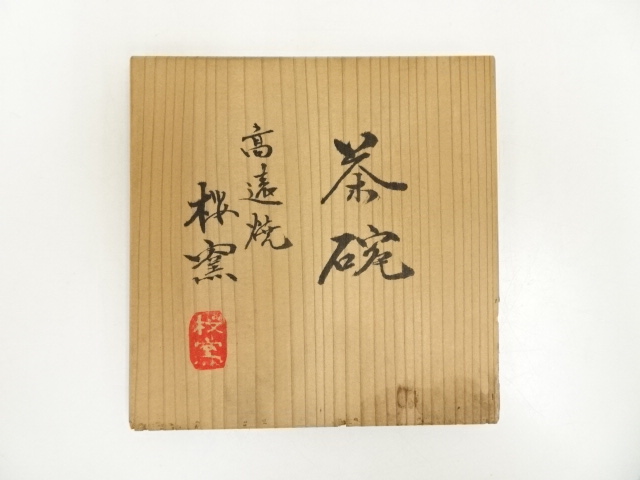 茶碗
高遠焼
桜窯
桜窯